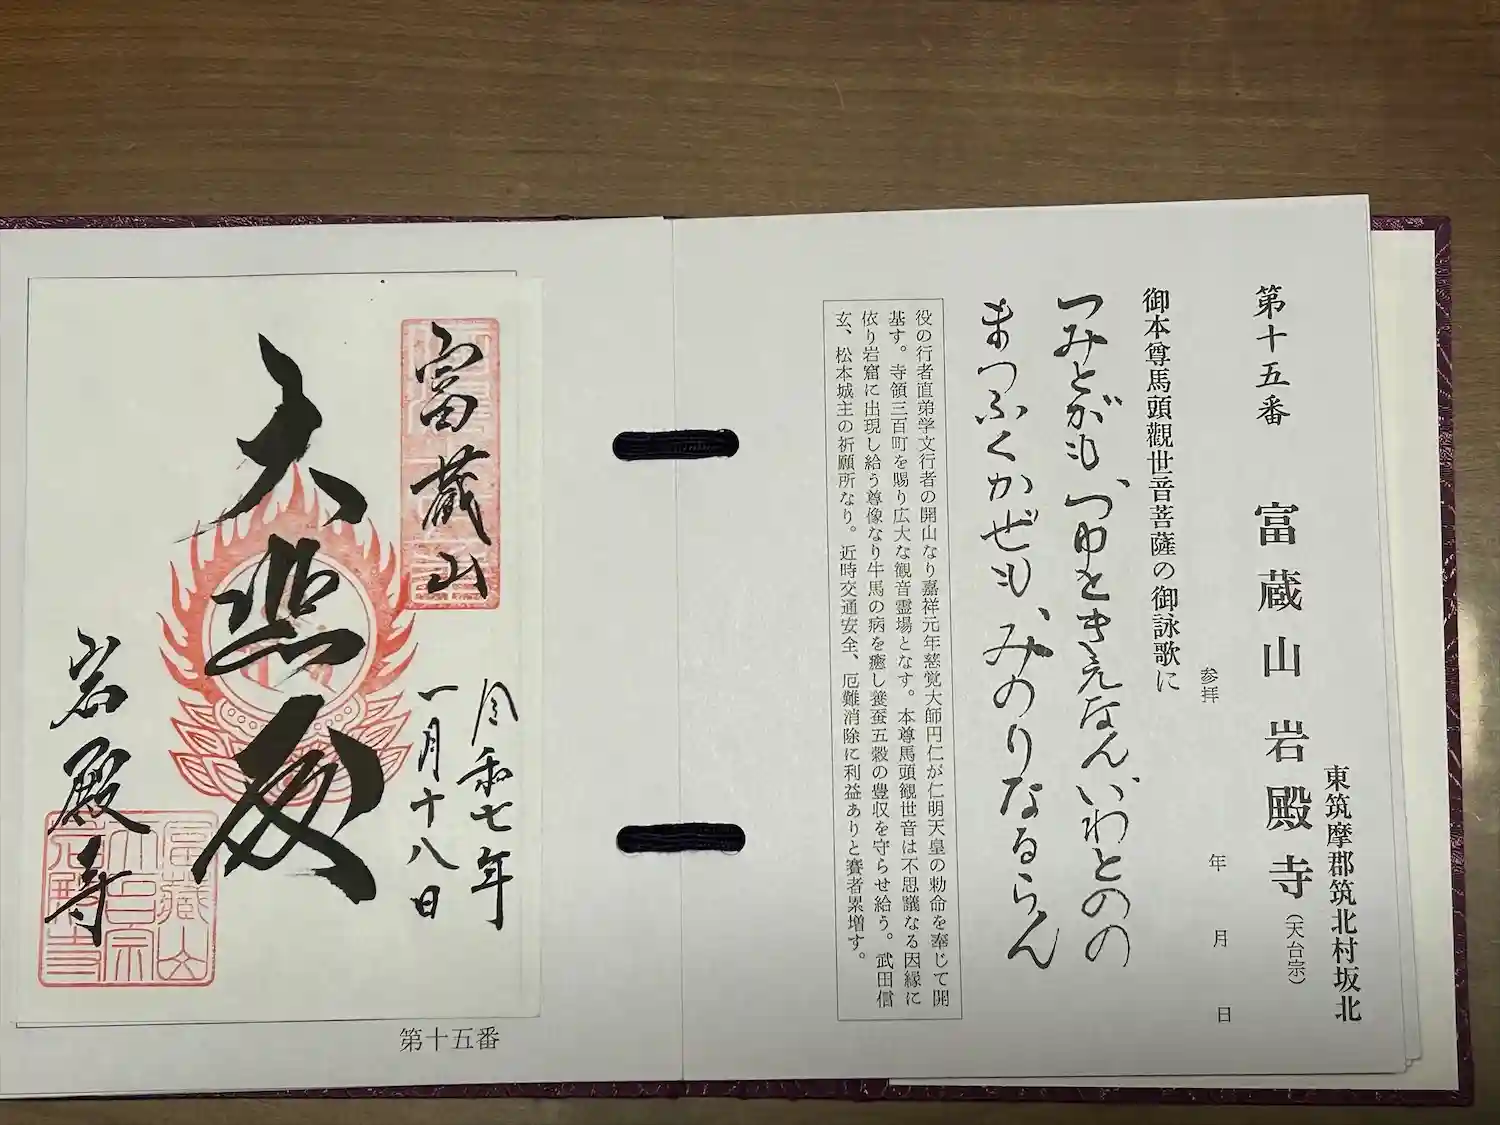 東筑摩郡筑北村坂北
第十五番 富蔵山 岩殿寺(天台宗)
参拝 年 月 日
御本尊馬頭觀世音菩薩の御詠歌に
つみとがも、つゆときえなん、いわとのの
まつふくかぜも、みのりなるらん
役の行者直弟学文行者の開山なり嘉祥元年慈覚大師円仁が仁明天皇の勅命を奉じて開
基す。寺領三百町を賜り広大な観音霊場となす。本尊馬頭観世音は不思議なる因縁に
依り岩窟に出現し給う尊像なり牛馬の病を癒し養蚕五穀の豊収を守らせ給う。武田信
玄、松本城主の祈願所なり。近時交通安全、厄難消除に利益ありと賽者累増す。
富蔵山
令和七年
一月十八日
大悲殿
岩殿寺
富蔵山
天台宗
岩殿寺
第十五番